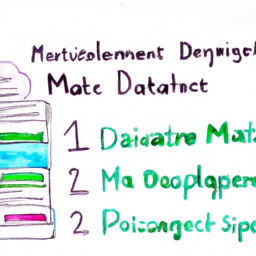 Mertvεolenment Denμigch
Mate Datatnct
1 Daiɑatre Mat
2 Ma Dooplgper
2 Poisongect Sip